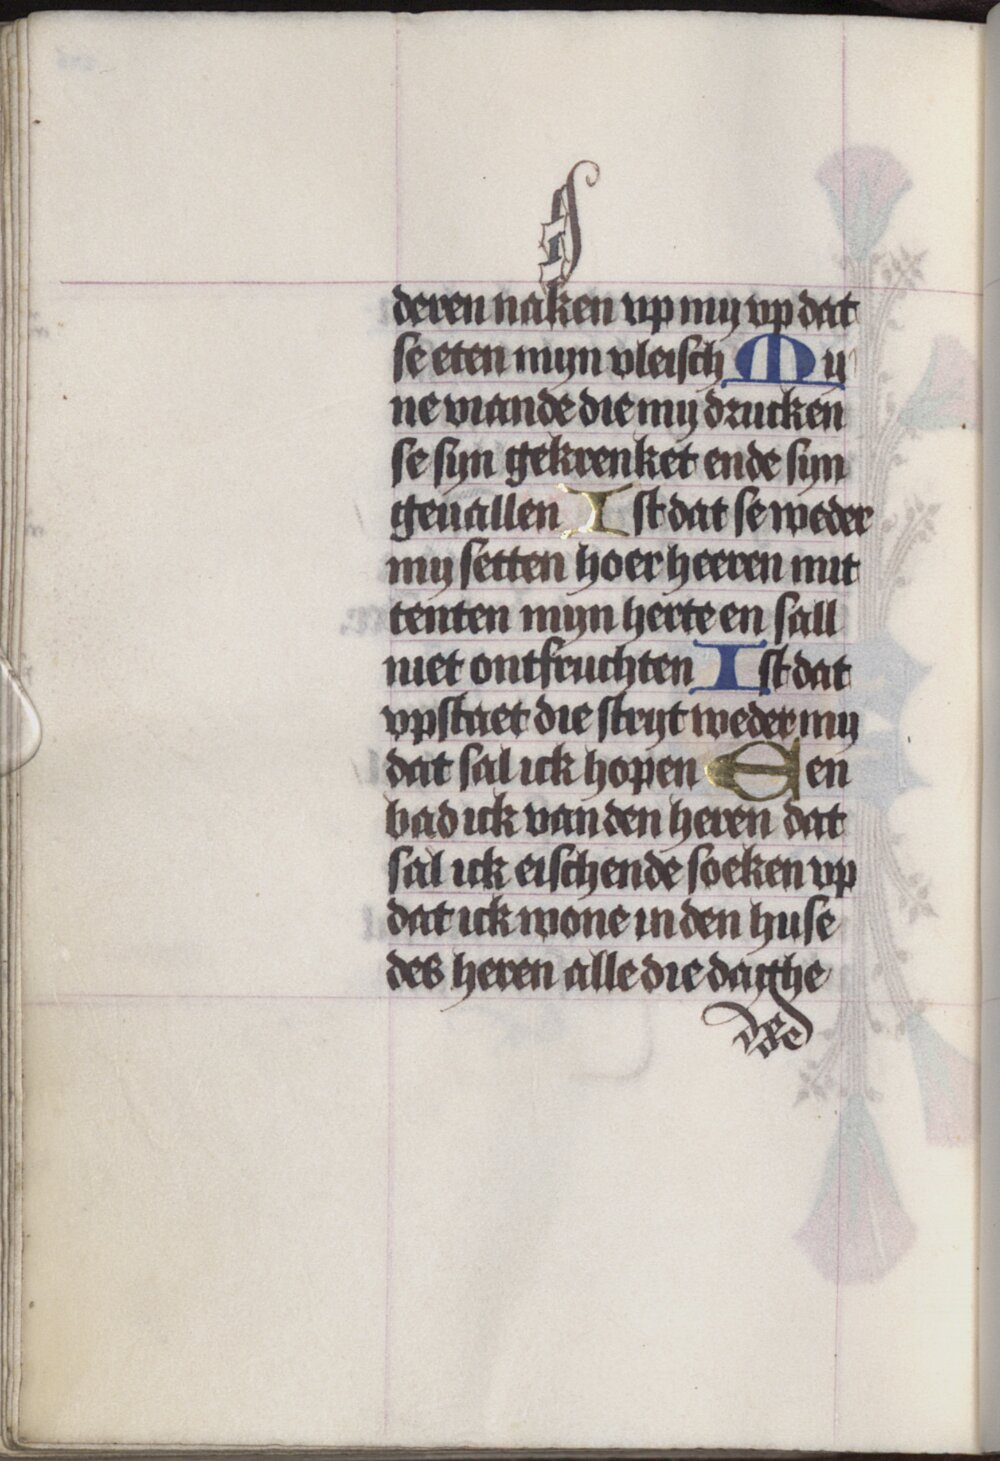 deren naken vp my vp dat
se eten myn vleisch My
ne viande die my drucken
se syn gekrenket ende syn
geuallen Ist dat se weder
my setten hoer heeren mit
tenten myn herte en sall
niet ontfruchten Ist dat
vpstaet die stryt weder my
dat sal ick hopen Een
bad ick van den heren dat
sal ick eischende soeken vp
dat ick wone in den huse
des heren alle die daghe